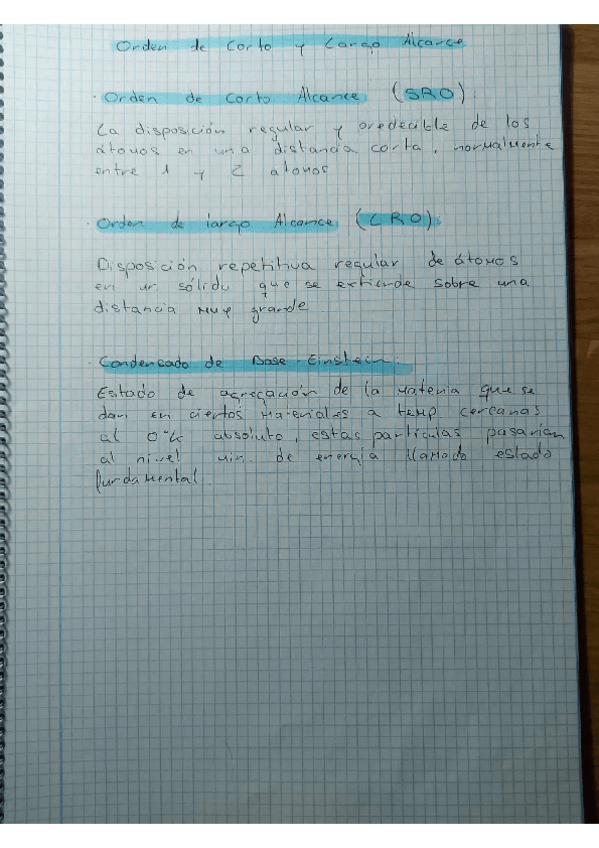 Orden de Corto y Largo Alcance
· Orden de Corto Alcance (SRO):
La disposición regular y predecible de los
átomos en una distancia corta, normalmente
entre 1 y 2 átomos
· Orden de largo Alcance (LRO):
Disposición repetitiva regular de átomos
en un sólido que se extiende sobre una
distancia muy grande
· Condensado de Bose-Einstein:
Estado de agregación de la materia que se
dan en ciertos materiales a temp cercanas
al 0°K absoluto, estas partículas pasarían
al nivel min. de energía llamado estado
fundamental.